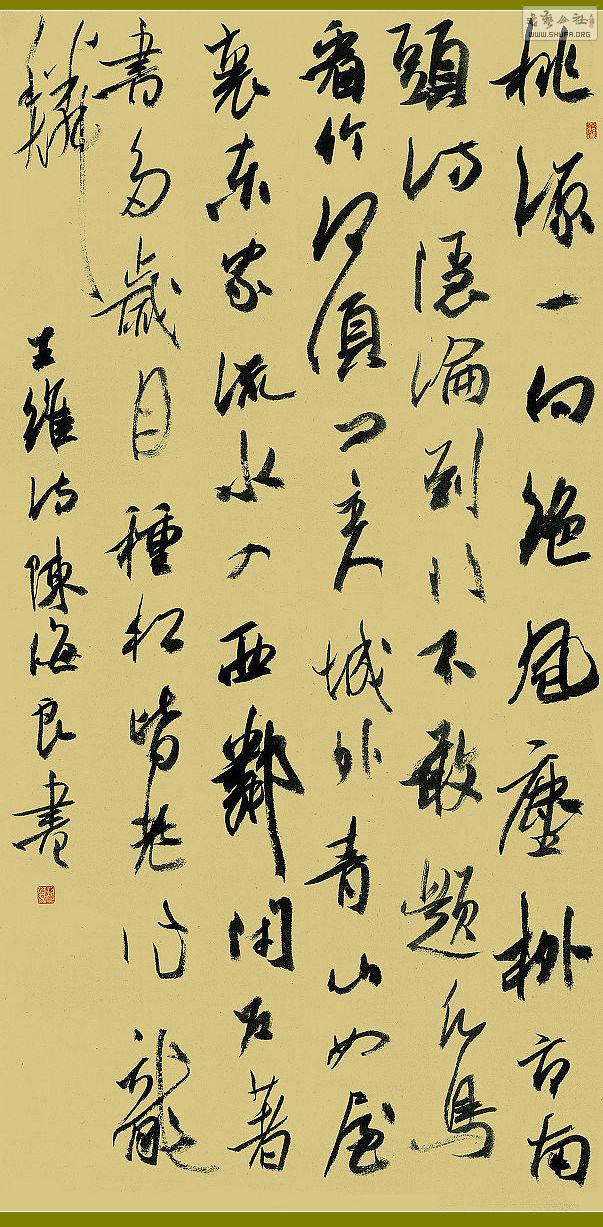 桃源一向絕風塵柳市南
頭訪隱淪到門不敢題凡鳥
看竹何須問主人城外青山如屋
裏東家流水入西鄰閉户著
書多歲月種松皆老作龍
鱗
王維詩陳海良書
書藝公社
WWW.SHUFA.ORG